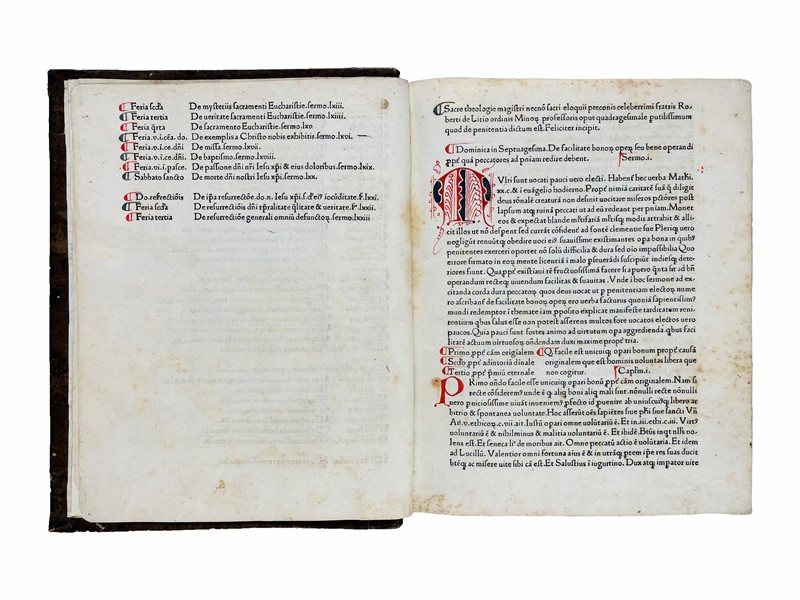 Feria scďa De mysteriis sacramenti Eucharistie.sermo.lxiii.
Feria tertia De ueritate sacramenti Eucharistie.sermo.lxiiii.
Feria q̄rta De sacramento Eucharistie.sermo.lxv
Feria.v.i.cēa.do. De exemplis a Christo nobis exhibitis.sermo.lxvi.
Feria.vi.i.ce.dñi De missa.sermo.lxvii.
Feria.v.i.ce.dñi. De baptismo.sermo.lxviii.
Feria.vi.i.pasce. De passione dñi nr̄i Iesu xp̄i & eius doloribus.sermo.lxix.
Sabbato sancto De morte dñi nostri Iesu xp̄i.sermo.lxx.
Do.refrectiōis De ip̄a resurrectōe.do.n.Iesu xp̄i. iocūditate.
Feria scďa De resurrectiōis dñi & ueritate.
Feria tertia De resurrectiōe generali omniū defunctoꝝ.sermo.lxxiii
Sacre theologie magistri necnō sacri eloquii preconis celeberrimi fratris Ro-
berti de Litio ordinis Minoꝝ professoris opus quadragesimale putilissimum
quod de penitentia dictum est. Feliciter incipit.
Dominica in Septuagesima. De facilitate bonoꝝ opeꝝ seu bene operandi
pp̄t' quā peccatores ad pn̄iam redire debent. Sermo.i.
MVlti sunt uocati pauci uero electi. Habent' hec uerba Mathi.
xx.c.& i euāgelio hodierno. Propt' nimiā caritatē suā q̄ diligit
deus rōnalē creaturā non definit uocitare miseros pctōres post
lapsum atq̄ ruinā peccati ut ad eū redeant per pn̄iam. Monet
eos & expectat blande mirabilisq̄ modis attrahit & alli-
cit illos ut nō despent sed currāt cōfident' ad fontē clementie sue Pleriq̄ uero
negligūt renuūtq̄ obedire uoci ei' suauissime existimantes opa bona in quib'
penitentes exerceri oportet nō solū difficilia & dura sed oīo impossibilia Quo
errore firmato in eoꝝ mente licentiā i malo pseuerādi suscipiūt indiesq̄ dete-
riores fiunt. Quapp̄t' existiaui rē fructuosissimā facere si a puero q̄nta sit ad bñ
operandum rectēq̄ uiuendum facilitas & suauitas. Vnde i hoc sermone ad ex-
citanda corda dura peccatoꝝ quos deus uocat ut p penitentiam electoꝝ nume
ro ascribant' de facilitate bonoꝝ opeꝝ ero uerba facturus quoniā sapientissim'
mundi redemptor i themate iam pposito explicat manifeste tarditatem reni-
tentium q̄bus salus esse non potest asserens multos fore uocatos electos uero
paucos. Quia pauci sunt fortes animo ad uirtutum opa aggredienda.q̄bus faci
litatē actuum uirtuosoꝝ ondendam duxi maxime prop' tria.
Primo.pp̄t' cām origialem Q. facile est unicuiq̄ opari bonum prop' causā
Scďo.pp̄t' adiutoriū diuinale originalem que est hominis uoluntas libera que
Tertio.pp̄t' pmiū eternale non cogitur. Capl'm.i.
PRimo ondo facile esse unicuiq̄ opari bonū pp̄t' cām originalem. Nam si
recte cōsiderem' unde ē q̄ aliq̄ boni aliq̄ mali sint.nonulli recte nonulli
uero pniciosissime uiuāt inueniem' pfecto id puenire ab uniuscui'q̄ libero ar
bitrio & spontanea uoluntate. Hoc asserūt oēs sapiētes siue ph̄i siue sancti Vñ
Ari.v.ethicoꝝ.c.vii.ait. Iustū opari omne uolūtariū ē. Et in.iii.ethic.c.iii. Virt'
uoluntariū ē & nibilminus & malitia uoluntariū ē. Et ibidē. Btūs inq̄t nll's no-
lens est. Et seneca li. de moribus ait. Omne peccatū actio ē uolūtaria. Et idem
ad Lucillū. Valentior omni fortuna aius ē & in utrāq̄ ptem ip̄e res suas ducit
btēq̄ ac misere uite sibi cā est. Et Salustius i iugurtino. Dux atq̄ impator uite